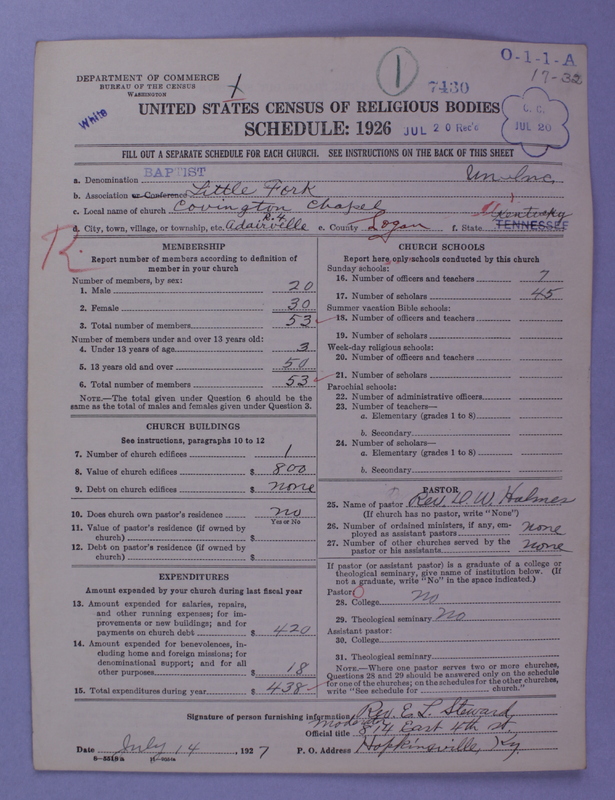 O-1-1-A
17-32
1
7430
DEPARTMENT OF COMMERCE
BUREAU OF THE CENSUS
WASHINGTON
White
UNITED STATES CENSUS OF RELIGIOUS BODIES
SCHEDULE: 1926
JUL 20 Rec'd
C.C.
JUL 20
FILL OUT A SEPARATE SCHEDULE FOR EACH CHURCH. SEE INSTRUCTIONS ON THE BACK OF THIS SHEET
a. Denomination BAPTIST Un-Inc.
b. Association or Conference Little Fork
c. Local name of church Covington Chapel Kentucky
d. City, town, village, or township, etc. Adairville R.4 e. County Logan f. State TENNESSEE
R.
MEMBERSHIP
Report number of members according to definition of
member in your church
Number of members, by sex:
1. Male 20
2. Female 30
3. Total number of members 53
Number of members under and over 13 years old:
4. Under 13 years of age 3
5. 13 years old and over 50
6. Total number of members 53
NOTE.—The total given under Question 6 should be the
same as the total of males and females given under Question 3.
CHURCH BUILDINGS
See instructions, paragraphs 10 to 12
7. Number of church edifices 1
8. Value of church edifices $ 800
9. Debt on church edifices $ none
10. Does church own pastor's residence? no
Yes or No
11. Value of pastor's residence (if owned by
church) $
12. Debt on pastor's residence (if owned by
church) $
EXPENDITURES
Amount expended by your church during last fiscal year
13. Amount expended for salaries, repairs,
and other running expenses; for im-
provements or new buildings; and for
payments on church debt $ 420
14. Amount expended for benevolences, in-
cluding home and foreign missions; for
denominational support; and for all
other purposes $ 18
15. Total expenditures during year $ 438
CHURCH SCHOOLS
Report here only schools conducted by this church
Sunday schools:
16. Number of officers and teachers 7
17. Number of scholars 45
Summer vacation Bible schools:
18. Number of officers and teachers
19. Number of scholars
Week-day religious schools:
20. Number of officers and teachers
21. Number of scholars
Parochial schools:
22. Number of administrative officers
23. Number of teachers—
a. Elementary (grades 1 to 8)
b. Secondary
24. Number of scholars—
a. Elementary (grades 1 to 8)
b. Secondary
PASTOR
25. Name of pastor Rev. D. W. Holmes
(If church has no pastor, write "None")
26. Number of ordained ministers, if any, em-
ployed as assistant pastors none
27. Number of other churches served by the
pastor or his assistants none
If pastor (or assistant pastor) is a graduate of a college or
theological seminary, give name of institution below. (If
not a graduate, write "No" in the space indicated.)
Pastor:
28. College no
29. Theological seminary No
Assistant pastor:
30. College
31. Theological seminary
NOTE.—Where one pastor serves two or more churches,
Questions 28 and 29 should be answered only on the schedule
for one of the churches; on the schedules for the other churches,
write "See schedule for church."
Signature of person furnishing information Rev. E. L. Steward
Moderator
Official title 814 East 4th St.
Date July 14, 1927 P. O. Address Hopkinsville, Ky